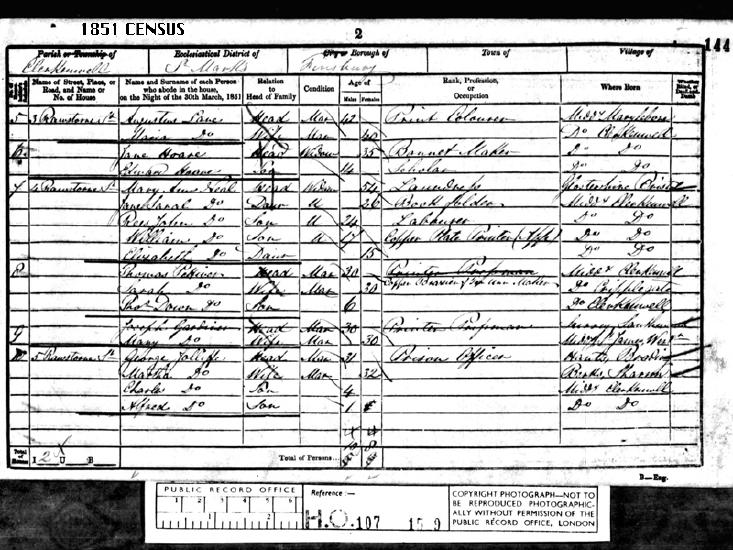 1851 CENSUS
2
144
Parish or Township of Ecclesiastical District of City or Borough of Town of Village of
Clerkenwell St Marks Finsbury
Name of Street, Place, or Road, and Name or No. of House
Name and Surname of each Person who abode in the house, on the Night of the 30th March, 1851
Relation to Head of Family
Condition
Age of
Males Females
Rank, Profession, or Occupation
Where Born
Whether Blind, or Deaf-and-Dumb
5 3 Rawstorne St Augustus Lane Head Mar 42 Print Colourer Middx Marylebone
Maria Do Wife Mar 40 Do Clerkenwell
6 Jane Hoare Head Widow 35 Bonnet Maker Do Do
Edward Hoare Son 14 Scholar Do Do
7 4 Rawstorne St Mary Ann Neal Head Widow 54 Laundress Glostershire Bristol
Jane Sarah Do Daur U 26 Book folder Middx Clerkenwell
John Do Son U 24 Labourer Do Do
William Do Son U 17 Copper Plate Printer (App) Do Do
Elizabeth Do Daur 15 Do Do
8 Thomas Head Mar 30 Middx Clerkenwell
Sarah Do Wife Mar 30 Do Cripplegate
Thos Do Son 6 Do Clerkenwell
9 Joseph Gardiner Head Mar 30 Printer Surrey
Mary Do Wife Mar 30 Middx St James
10 5 Rawstorne St George Jolliffe Head Mar 31 Prison Officer Hants
Martha Do Wife Mar 32 Berks
Charles Do Son 4 Middx Clerkenwell
Alfred Do Son 1 Do Do
Total of Houses I 2 U B
Total of Persons...
B—Eng.
PUBLIC RECORD OFFICE
1 2 3 4 5 6
1 2
Reference :—
H.O. 107
COPYRIGHT PHOTOGRAPH—NOT TO
BE REPRODUCED PHOTOGRAPHIC-
ALLY WITHOUT PERMISSION OF THE
PUBLIC RECORD OFFICE, LONDON